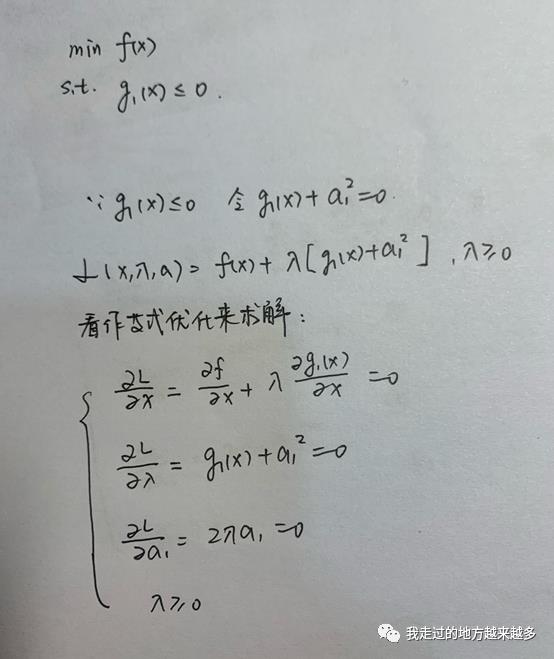 min f(x)
s.t. g₁(x) ≤ 0.
∵ g₁(x) ≤ 0 令 g₁(x) + a₁² = 0.
L(x, λ, a) = f(x) + λ[g₁(x) + a₁²], λ ≥ 0
看作等式优化来求解:
∂L/∂x = ∂f/∂x + λ ∂g₁(x)/∂x = 0
∂L/∂λ = g₁(x) + a₁² = 0
∂L/∂a₁ = 2λa₁ = 0
λ ≥ 0
我走过的地方越来越多